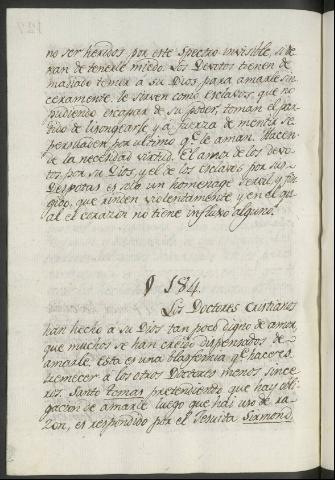 no ser heridos por este Spectro invisible, si de
xan de tenerle miedo. Los Devotos tienen de
masiado temor á su Dios para amarle sin
ceramente: le sirven como esclavos, que no
pudiendo escapar de su poder, toman el par
tido de lisongearle y a fuerza de mentir se
persuaden por ultimo q.e le aman. Hacen
de la necesidad virtud. El amor de los devo
tos por su Dios, y el de los esclavos por sus
Despotas es solo un homenage servil y fin
gido, que rinden violentamente y en el qu
al el corazon no tiene influxo alguno.
§ 184.
Los Doctores Cristianos
han hecho a su Dios tan poco digno de amor,
que muchos se han creido dispensados de
amarle. Esta es una blasfemia q.e hace es
tremecer a los otros Doctores menos since
ros. Santo tomas pretendiendo que hay obli
gacion de amar á luego que hai uso de ra
zon, es respondido por el Jesuita Sirmond